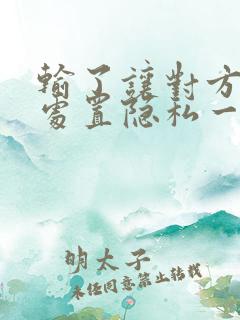 輸了讓對方
處置隐私一
明太子
未经同意禁止转载